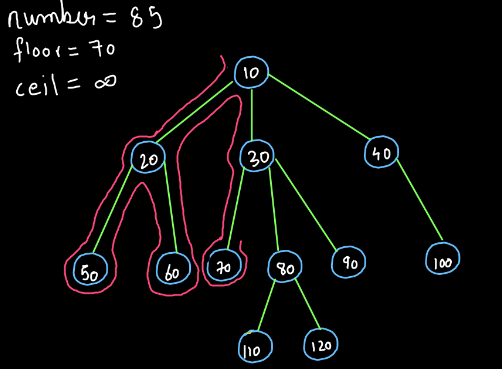 number = 85
floor = 70
ceil = ∞
10
20 30 40
50 60 70 80 90 100
110 120